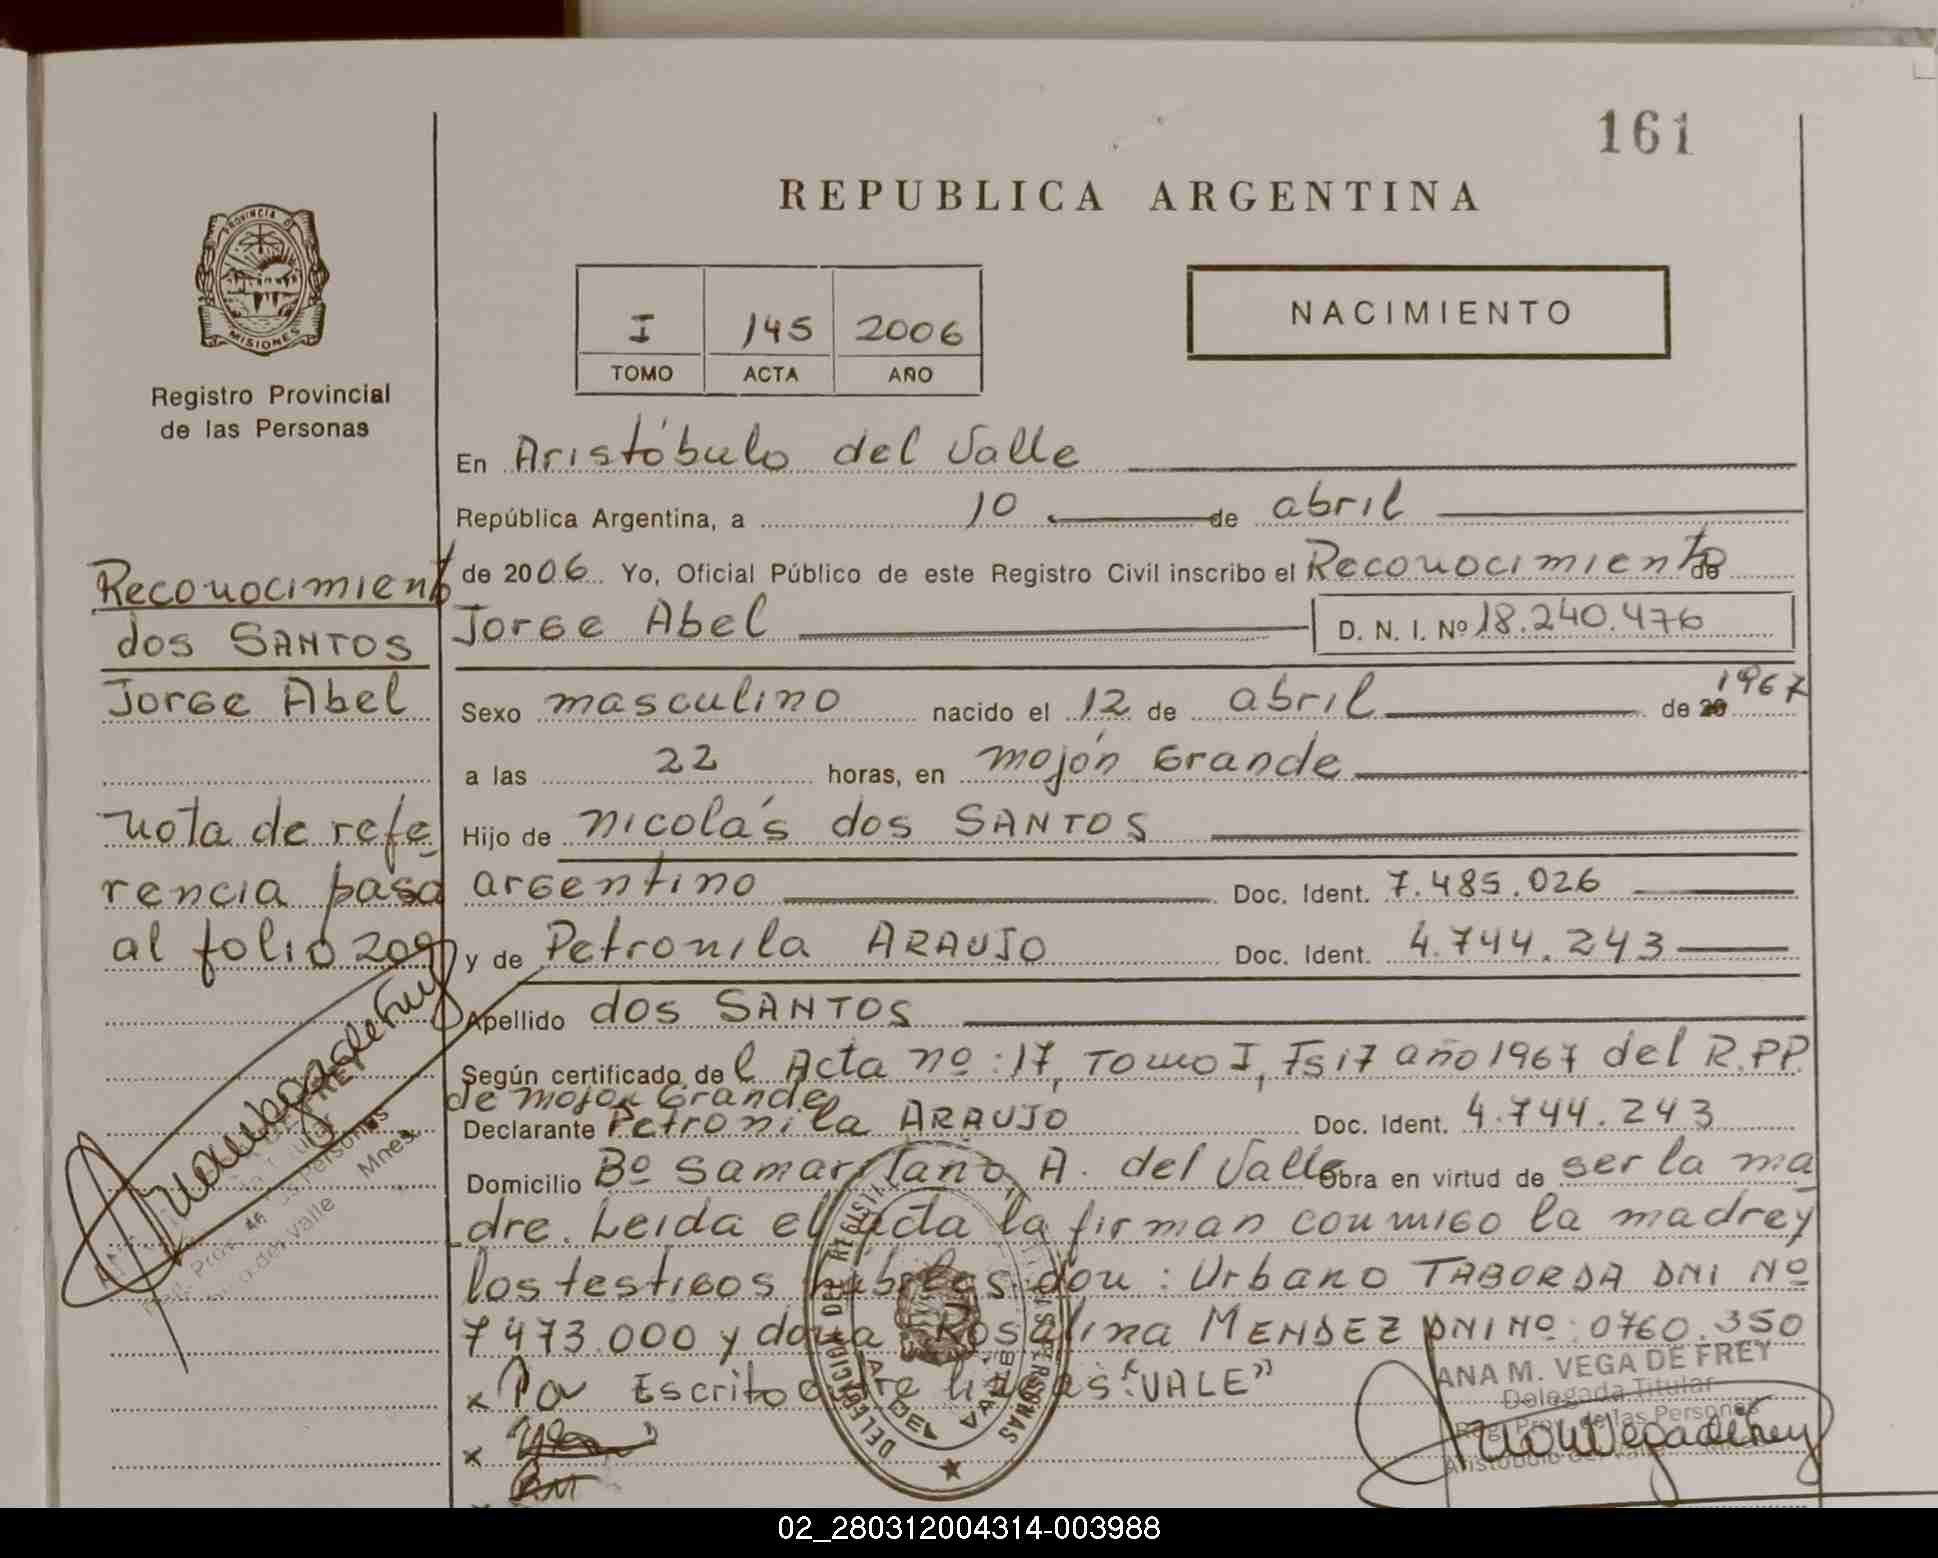 161
REPUBLICA ARGENTINA
PROVINCIA DE
MISIONES
Registro Provincial
de las Personas
I 145 2006
TOMO ACTA AÑO
NACIMIENTO
En Aristóbulo del Valle
República Argentina, a 10 de abril
de 2006 Yo, Oficial Público de este Registro Civil inscribo el Reconocimiento de
Jorge Abel D. N. I. Nº 18.240.476
Sexo masculino nacido el 12 de abril de 20 1967
a las 22 horas, en mojón Grande
Hijo de nicolás dos SANTOS
argentino Doc. Ident. 7.485.026
y de Petronila ARAUJO Doc. Ident. 4.744.243
Apellido dos SANTOS
Según certificado de l Acta nº: 17, Tomo I, Fs 17 año 1967 del R.P.P.
de mojón Grande
Declarante Petronila ARAUJO Doc. Ident. 4.744.243
Domicilio Bº Samaritano, A. del Valle Obra en virtud de ser la ma
dre. Leida el acta la firman conmigo la madre y
los testigos hábiles don: Urbano TABORDA DNI Nº
7473.000 y doña Rosalina MENDEZ DNI Nº: 0760.350
x Pa Escrito entre líneas: "VALE"
x
ANA M. VEGA DE FREY
Delegada Titular
Reg. Prov. de las Personas
Aristóbulo del Valle
Reconocimiento
dos SANTOS
Jorge Abel
nota de refe
rencia pasa
al folio 209
02_280312004314-003988